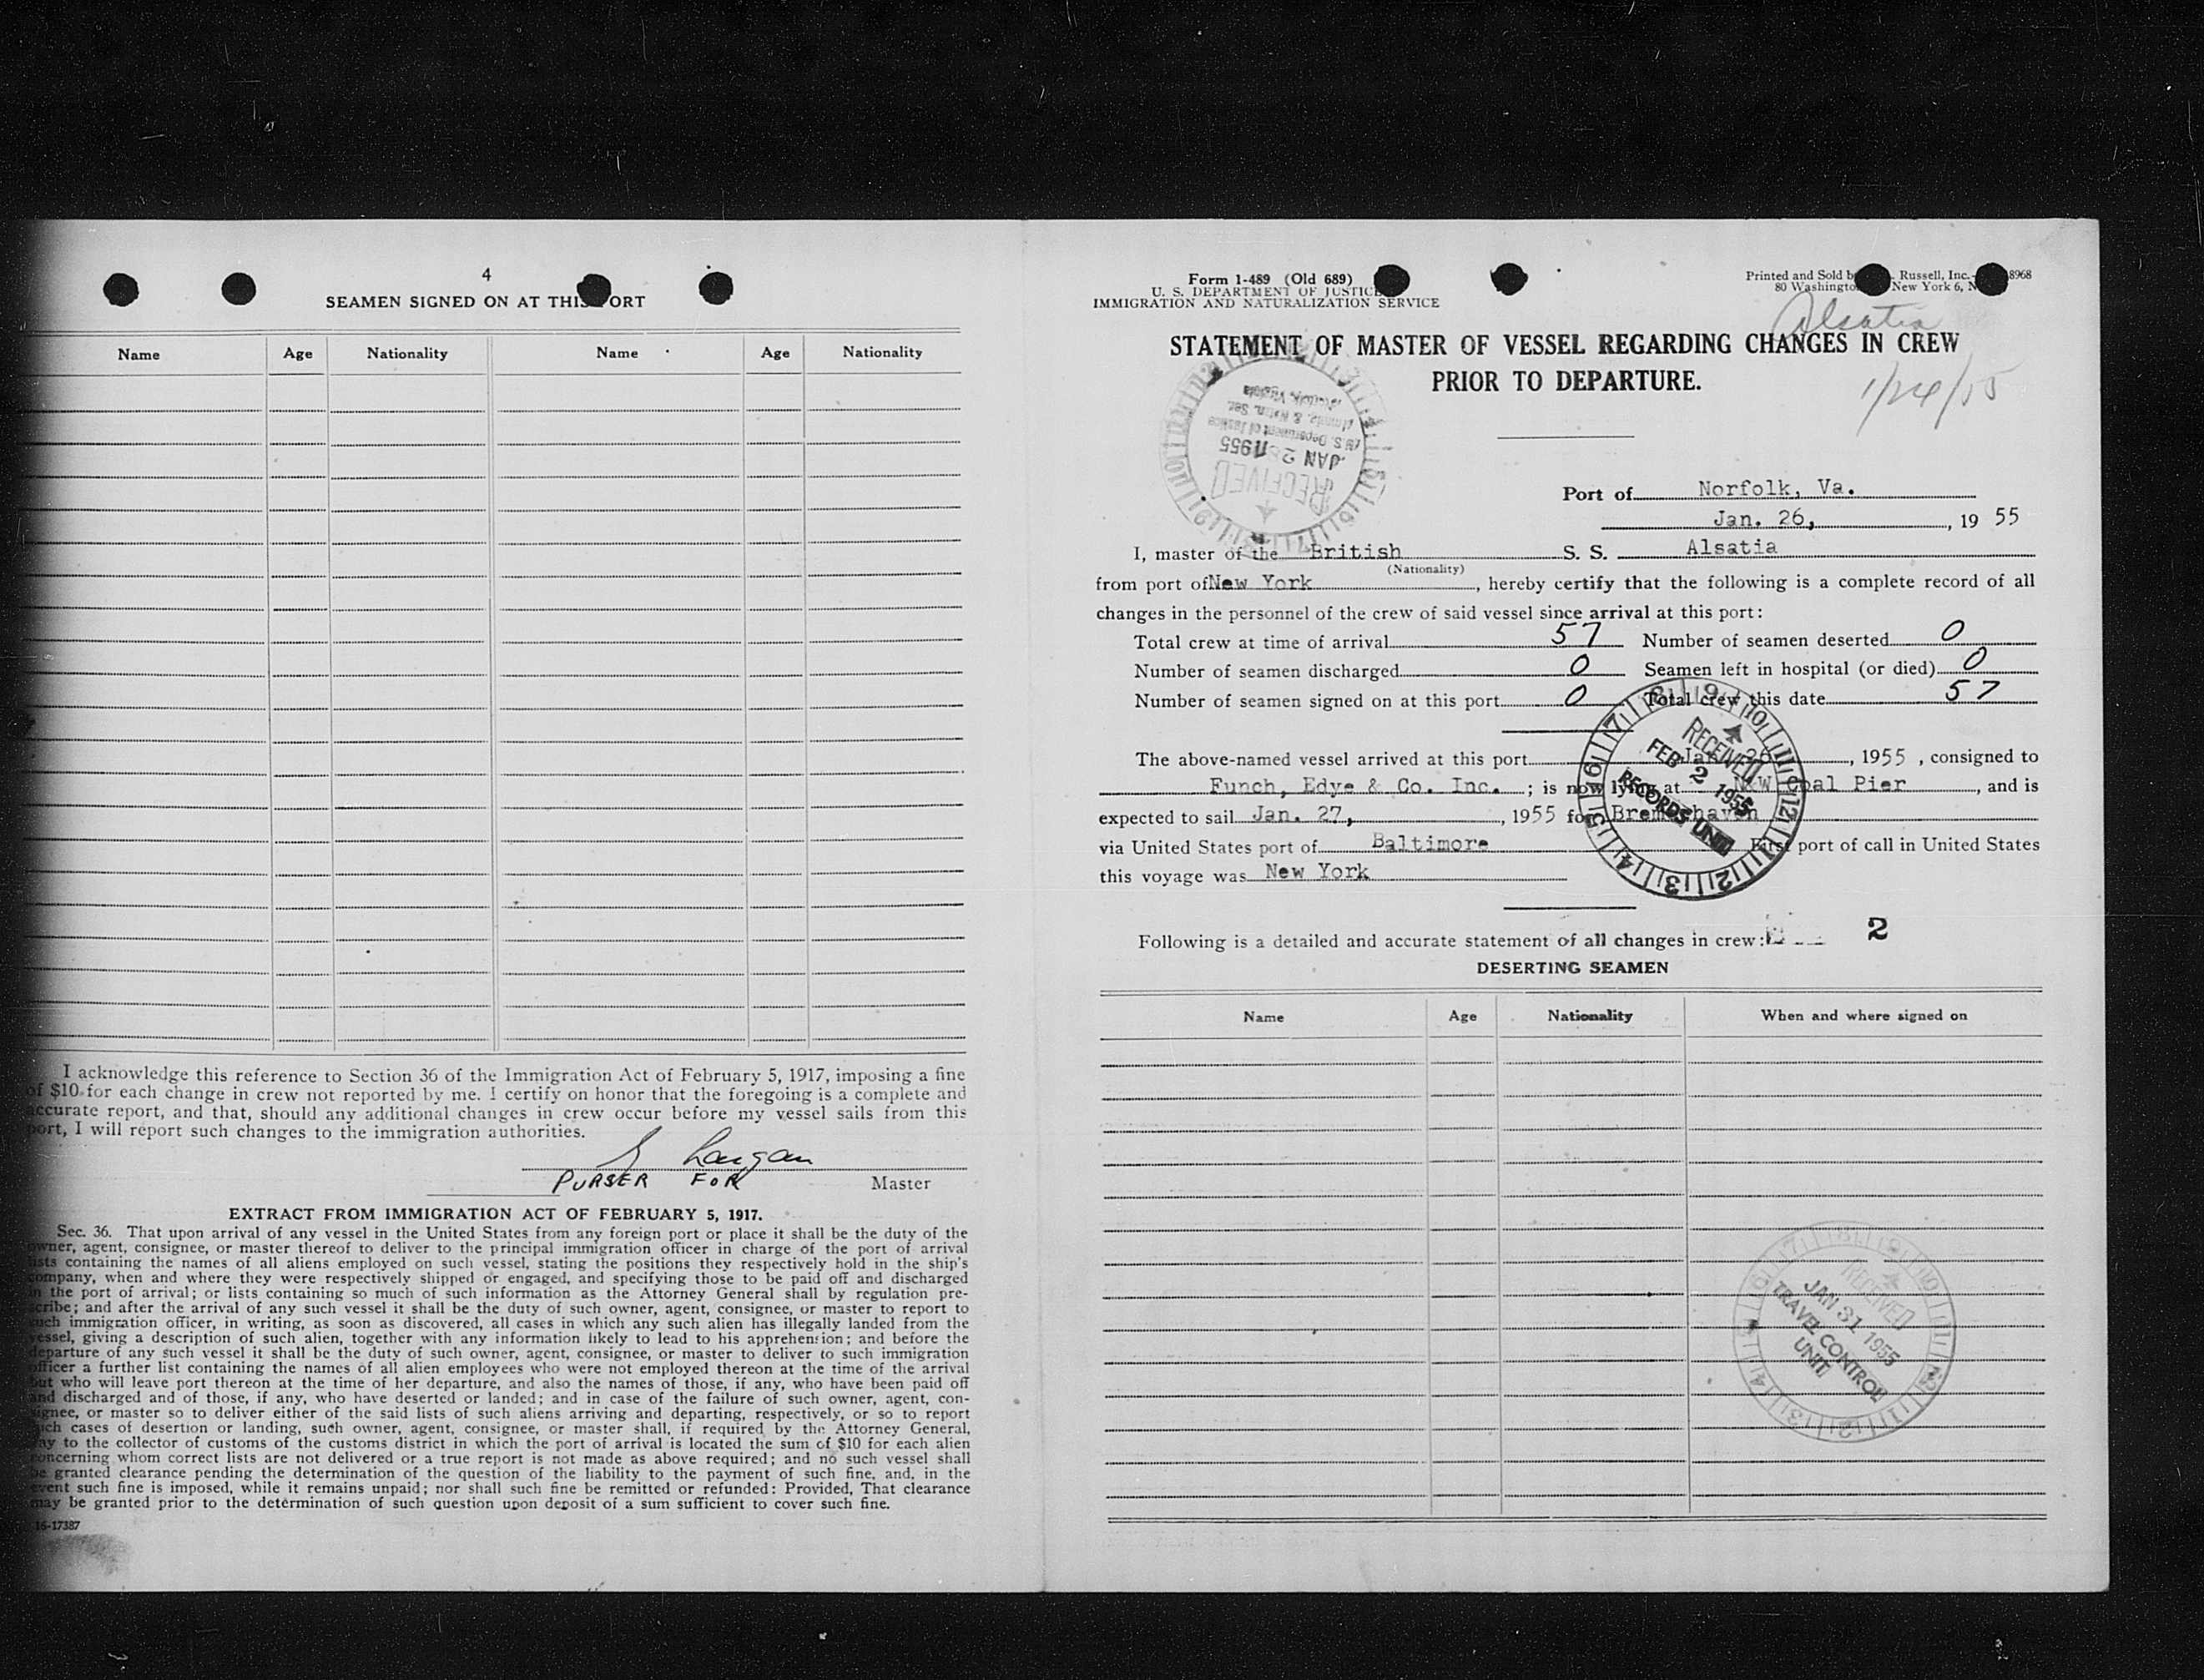 4
SEAMEN SIGNED ON AT THIS PORT
Name Age Nationality Name Age Nationality
I acknowledge this reference to Section 36 of the Immigration Act of February 5, 1917, imposing a fine
of $10 for each change in crew not reported by me. I certify on honor that the foregoing is a complete and
accurate report, and that, should any additional changes in crew occur before my vessel sails from this
port, I will report such changes to the immigration authorities.
PURSER FOR Master
EXTRACT FROM IMMIGRATION ACT OF FEBRUARY 5, 1917.
Sec. 36. That upon arrival of any vessel in the United States from any foreign port or place it shall be the duty of the
owner, agent, consignee, or master thereof to deliver to the principal immigration officer in charge of the port of arrival
lists containing the names of all aliens employed on such vessel, stating the positions they respectively hold in the ship's
company, when and where they were respectively shipped or engaged, and specifying those to be paid off and discharged
in the port of arrival; or lists containing so much of such information as the Attorney General shall by regulation pre-
scribe; and after the arrival of any such vessel it shall be the duty of such owner, agent, consignee, or master to report to
such immigration officer, in writing, as soon as discovered, all cases in which any such alien has illegally landed from the
vessel, giving a description of such alien, together with any information likely to lead to his apprehension; and before the
departure of any such vessel it shall be the duty of such owner, agent, consignee, or master to deliver to such immigration
officer a further list containing the names of all alien employees who were not employed thereon at the time of the arrival
but who will leave port thereon at the time of her departure, and also the names of those, if any, who have been paid off
and discharged and of those, if any, who have deserted or landed; and in case of the failure of such owner, agent, con-
signee, or master so to deliver either of the said lists of such aliens arriving and departing, respectively, or so to report
such cases of desertion or landing, such owner, agent, consignee, or master shall, if required by the Attorney General,
pay to the collector of customs of the customs district in which the port of arrival is located the sum of $10 for each alien
concerning whom correct lists are not delivered or a true report is not made as above required; and no such vessel shall
be granted clearance pending the determination of the question of the liability to the payment of such fine, and, in the
event such fine is imposed, while it remains unpaid; nor shall such fine be remitted or refunded: Provided, That clearance
may be granted prior to the determination of such question upon deposit of a sum sufficient to cover such fine.
16-17387
Form 1-489 (Old 689)
U. S. DEPARTMENT OF JUSTICE
IMMIGRATION AND NATURALIZATION SERVICE
Printed and Sold by Russell, Inc. 8968
80 Washington New York 6, N
Alsatia
STATEMENT OF MASTER OF VESSEL REGARDING CHANGES IN CREW
PRIOR TO DEPARTURE.
1/24/55
RECEIVED
JAN 1955
U.S. Department of Justice
Immig. & Natzn. Ser.
Norfolk, Virginia
Port of Norfolk, Va.
Jan. 26, , 19 55
I, master of the British S. S. Alsatia
(Nationality)
from port of New York , hereby certify that the following is a complete record of all
changes in the personnel of the crew of said vessel since arrival at this port:
Total crew at time of arrival 57 Number of seamen deserted 0
Number of seamen discharged 0 Seamen left in hospital (or died) 0
Number of seamen signed on at this port 0 Total crew this date 57
The above-named vessel arrived at this port Jan. 26 , 1955 , consigned to
Funch, Edye & Co. Inc. ; is now lying at N&W Coal Pier , and is
expected to sail Jan. 27, , 1955 for Bremerhaven
via United States port of Baltimore First port of call in United States
this voyage was New York
RECEIVED
FEB 2 1955
RECORDS UNIT
Following is a detailed and accurate statement of all changes in crew: 2
DESERTING SEAMEN
Name Age Nationality When and where signed on
RECEIVED
JAN 31 1955
TRAVEL CONTROL
UNIT